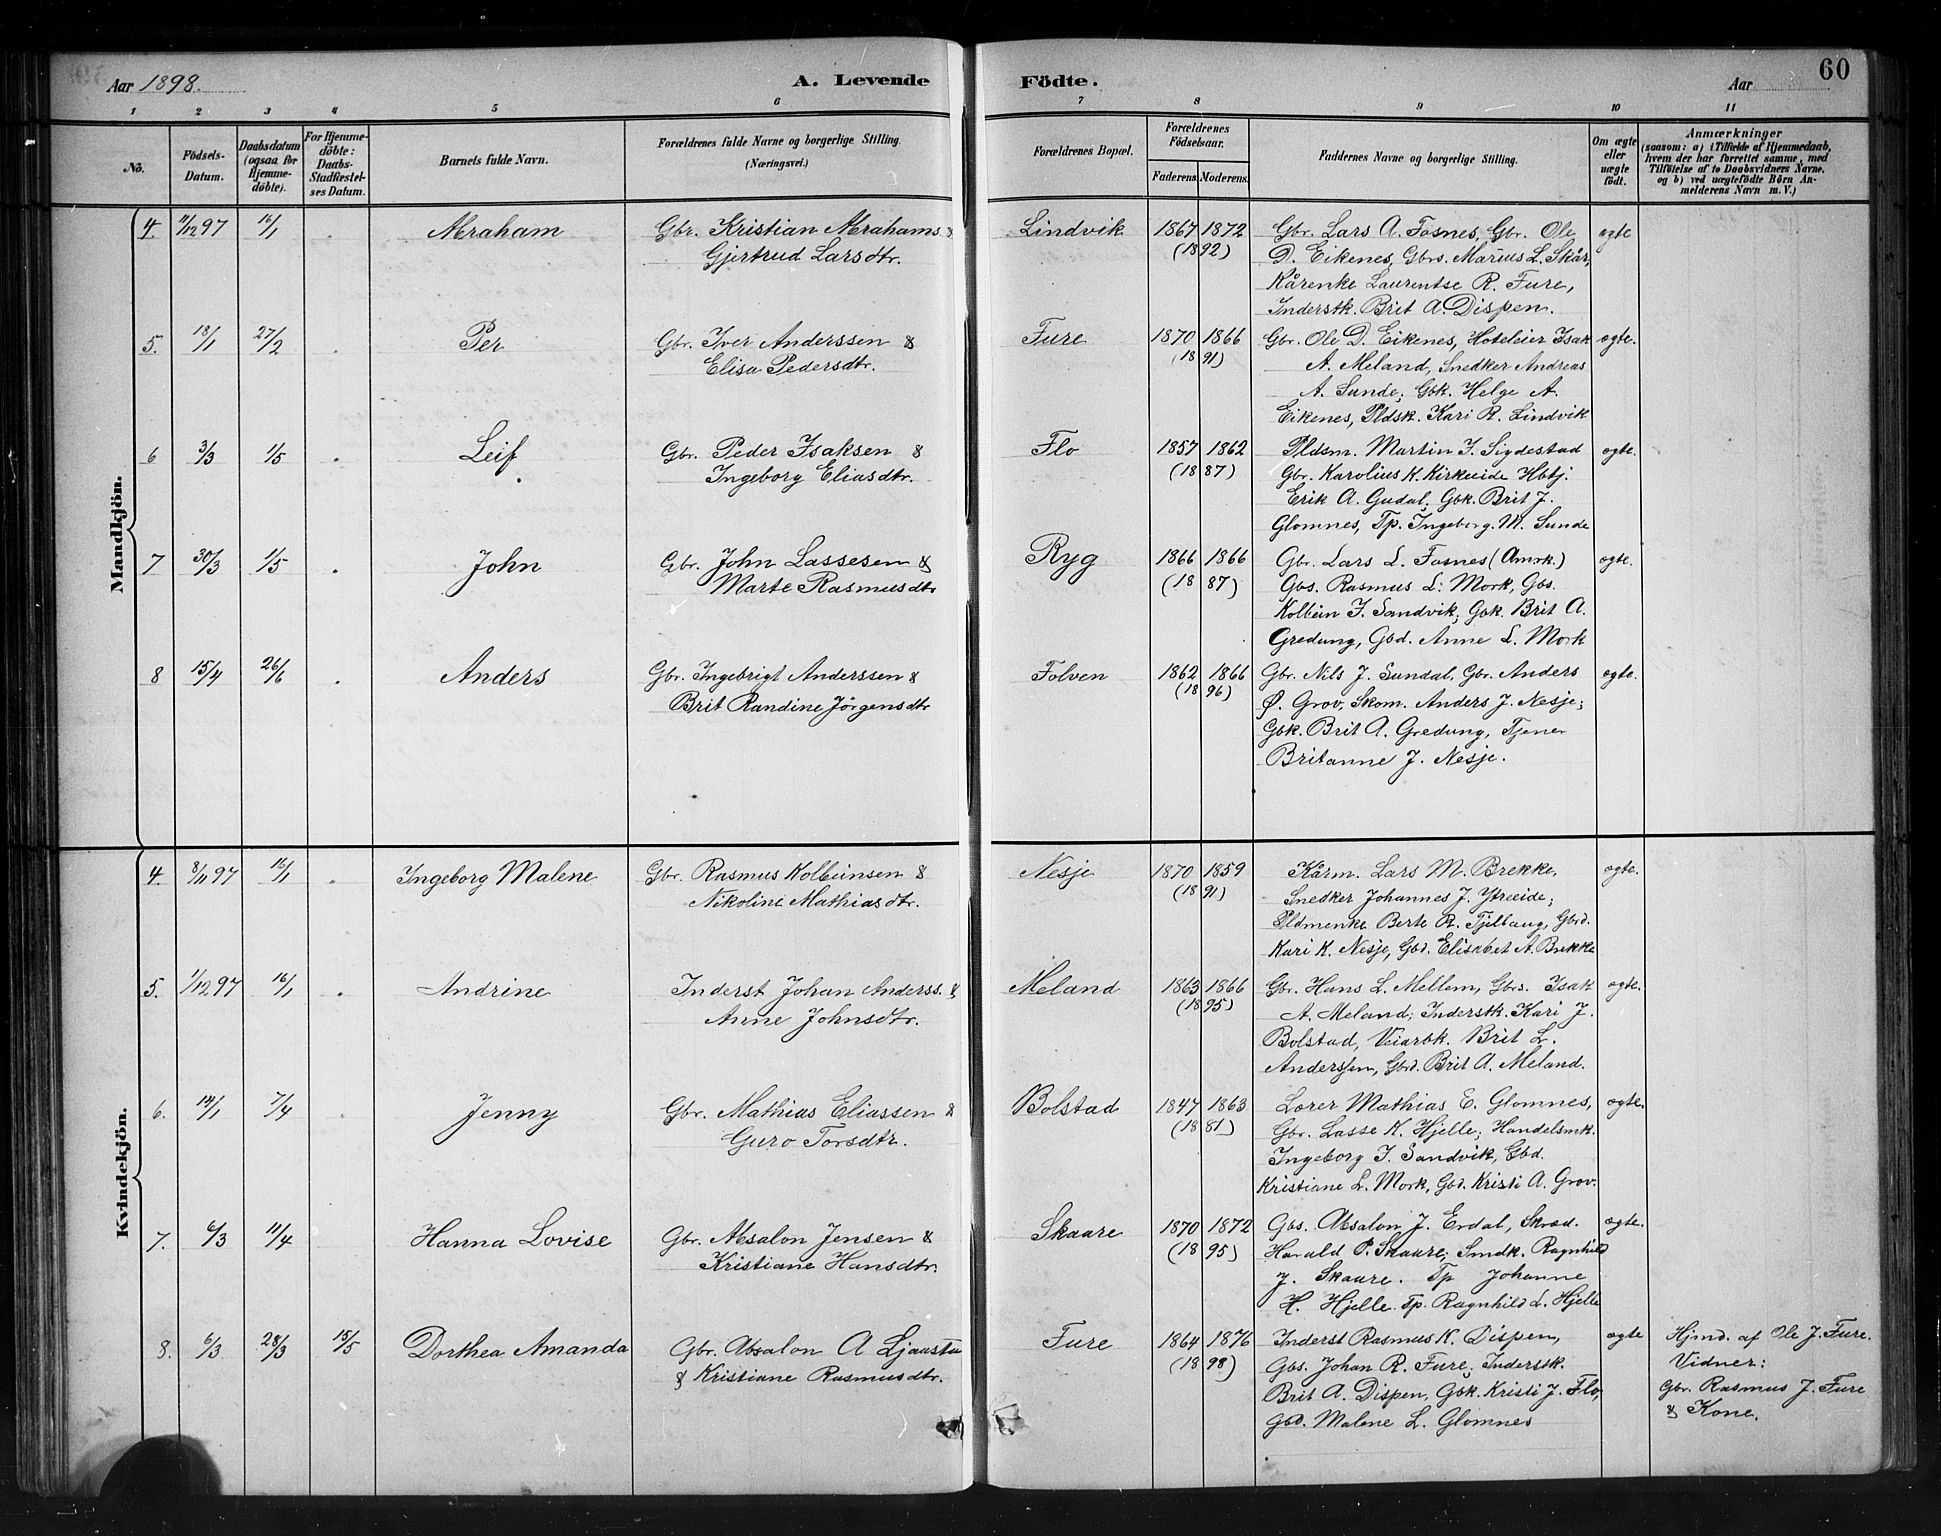 Aar 1898. A. Levende Födte. Aar 60
1 2 3 4 5 6 7 8 9 10 11
No.
Födsels-
Datum.
Daabsdatum
(ogsaa for
Hjemme-
döbte).
For Hjemme-
döbte:
Daabs-
Stadfæstel-
ses Datum.
Barnets fulde Navn.
Forældrenes fulde Navne og borgerlige Stilling.
(Næringsvei.)
Forældrenes Bopæl.
Forældrenes
Födselsaar.
Faderens. Moderens.
Faddernes Navne og borgerlige Stilling.
Om ægte
eller
uægte
födt.
Anmærkninger
(saasom: a) i Tilfælde af Hjemmedaab,
hvem der har forrettet samme, med
Tilföielse af to Daabsvidners Navne,
og b) ved uægtefödte Börn An-
melderens Navn m. V.)
Mandkjön.
4. 11/12 97 16/1 Abraham Gbr. Kristian Abrahams. & Lindvik 1867 1872 Gbr. Lars A. Fosnes, Gbr. Ole ægte
Gjertrud Larsdtr. (1892) D. Eikenes, Gbrs. Marius L. Skår,
Kårenke Laurentse R. Fure,
Inderstk. Brit A. Dispen.
5. 18/1 27/2 Per Gbr. Iver Anderssen & Fure 1870 1866 Gbr. Ole D. Eikenes, Hoteleier Isak ægte.
Elisa Pedersdtr. (1891) A. Meland, Snedker Andreas
A. Sunde; Gbk. Helge A.
Eikenes, Pldsk. Kari R. Lindvik
6 3/3 1/5 Leif Gbr. Peder Isaksen & Flo 1857 1862 Pldsm. Martin J. Sigdestad ægte.
Ingeborg Eliasdtr. (1887) Gbr. Karolius K. Kirkeeide Hbtj.
Erik A. Gudal; Gbk. Brit J.
Glomnes, Tp. Ingeborg. M. Sunde
7 30/3 1/5 John Gbr. John Lassesen & Ryg 1866 1866 Gbr. Lars L. Fosnes (Amrk.) ægte.
Marte Rasmusdtr (1887) Gbs. Rasmus L. Mork, Gbs.
Kolbein J. Sandvik; Gbk. Brit A.
Gredung, Gbd. Anne L. Mork
8 15/4 26/6 Anders Gbr. Ingebrigt Anderssen & Folven 1862 1866 Gbr. Nils J. Sundal, Gbr. Anders ægte.
Brit Randine Jörgensdtr (1896) Ø. Grov, Skom. Anders J. Nesje;
Gbk. Brit A. Gredung, Tjener
Britanne J. Nesje.
Kvindekjön.
4. 8/11 97 16/1 Ingeborg Malene Gbr. Rasmus Kolbeinsen & Nesje 1870 1859 Kårm. Lars M. Brekke, ægte.
Nikoline Mathiasdtr. (1891) Snedker Johannes J. Ytreeide;
Pldmenke Berte R. Tjelbaug, Gbrd.
Kari K. Nesje, Gbd. Elisabet A. Brekke
5. 1/12 97 16/1 Andrine Inderst Johan Anderss. & Meland 1863 1866 Gbr. Hans L. Mellem, Gbrs. Isak ægte.
Anne Johnsdtr. (1895) A. Meland; Inderstk. Kari J.
Bolstad, Veiarbk. Brit L.
Anderssen, Gbrd. Brit A. Meland.
6. 14/1 7/4 Jenny Gbr. Mathias Eliassen & Bolstad 1847 1863 Lærer Mathias E. Glomnes, ægte.
Guro Torsdtr. (1881) Gbr. Lasse K. Hjelle; Handelsmk.
Ingeborg J. Sandvik, Gbd.
Kristiane L. Mork, Gbd. Kristi A. Grov.
7. 6/3 11/4 Hanna Lovise Gbr. Absalon Jensen & Skaare 1870 1872 Gbs. Absalon J. Erdal, Skræd. ægte.
Kristiane Hansdtr. (1895) Harald P. Skaare; Smdk. Ragnhild
J. Skaare. Tp Johanne
H. Hjelle. Tp. Ragnhild L. Hjelle
8. 6/3 28/3 15/5 Dorthea Amanda Gbr. Absalon A Ljaastu Fure 1864 1876 Inderst Rasmus K. Dispen, ægte Hjmd. af Ole J. Fure.
& Kristiane Rasmusdtr. (1898) Gbs. Johan R. Fure; Inderstk. Vidner:
Brit A. Dispen, Gbk. Kristi J. Flo, Gbr. Rasmus J. Fure
Gbd. Malene L. Glomnes & Kone.